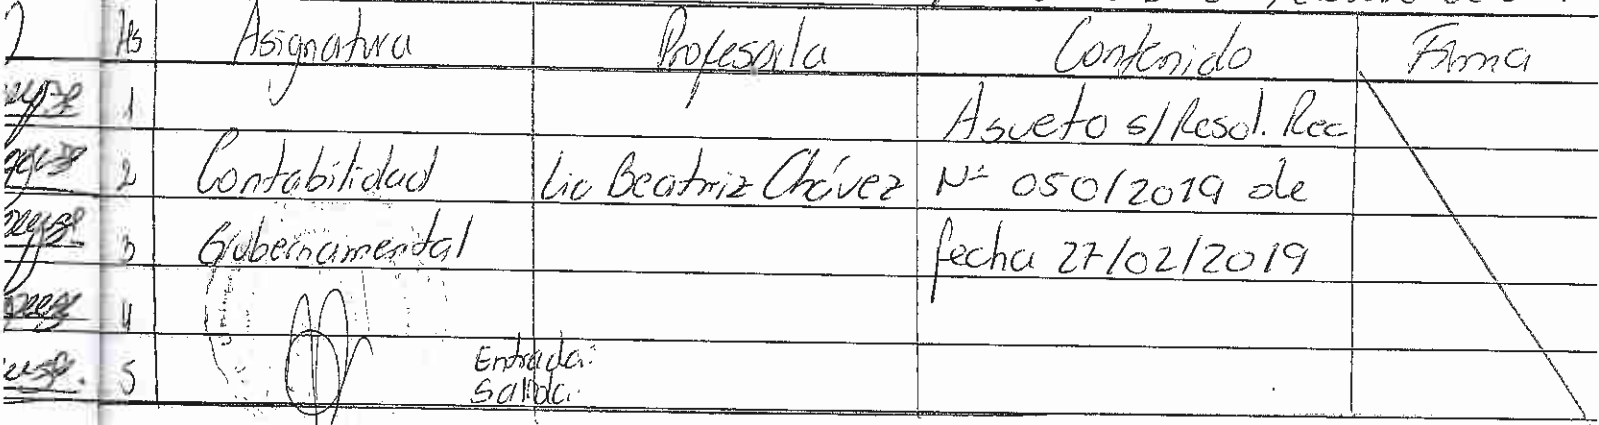 Hs Asignatura Profesor/a Contenido Firma
1 Asueto s/Resol. Rec
2 Contabilidad Lic Beatriz Chávez Nº 050/2019 de
3 Gubernamental fecha 27/02/2019
4
5 Entrada:
Salida: